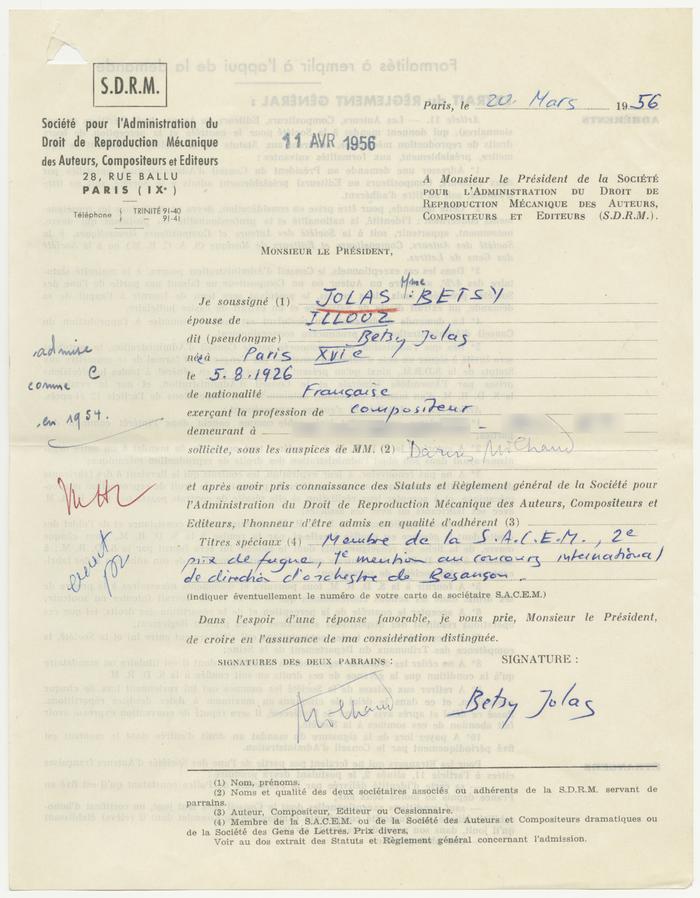 S.D.R.M.
Société pour l'Administration du
Droit de Reproduction Mécanique
des Auteurs, Compositeurs et Editeurs
28, RUE BALLU
PARIS (IXe)
Téléphone { TRINITÉ 91-40
91-41
11 AVR 1956
Paris, le 20 Mars 1956
A Monsieur le Président de la SOCIÉTÉ
POUR L'ADMINISTRATION DU DROIT DE
REPRODUCTION MÉCANIQUE DES AUTEURS,
COMPOSITEURS ET EDITEURS (S.D.R.M.).
MONSIEUR LE PRÉSIDENT,
Je soussigné (1) JOLAS Mme : BETSY
épouse de ILLOUZ
dit (pseudonyme) Betsy Jolas
née à Paris XVIe
le 5.8.1926
de nationalité Française
exerçant la profession de compositeur
demeurant à
sollicite, sous les auspices de MM. (2) Darius Milhaud
admise
comme C
en 1954.
et après avoir pris connaissance des Statuts et Règlement général de la Société pour
l'Administration du Droit de Reproduction Mécanique des Auteurs, Compositeurs et
Editeurs, l'honneur d'être admis en qualité d'adhérent (3)
Titres spéciaux (4) Membre de la S.A.C.E.M., 2e
prix de fugue, 1e mention au concours international
de direction d'orchestre de Besançon.
(indiquer éventuellement le numéro de votre carte de sociétaire S.A.C.E.M.)
Dans l'espoir d'une réponse favorable, je vous prie, Monsieur le Président,
de croire en l'assurance de ma considération distinguée.
SIGNATURES DES DEUX PARRAINS :
SIGNATURE :
Milhaud
Betsy Jolas
(1) Nom, prénoms.
(2) Noms et qualité des deux sociétaires associés ou adhérents de la S.D.R.M. servant de
parrains.
(3) Auteur, Compositeur, Editeur ou Cessionnaire.
(4) Membre de la S.A.C.E.M. ou de la Société des Auteurs et Compositeurs dramatiques ou
de la Société des Gens de Lettres. Prix divers.
Voir au dos extrait des Statuts et Règlement général concernant l'admission.